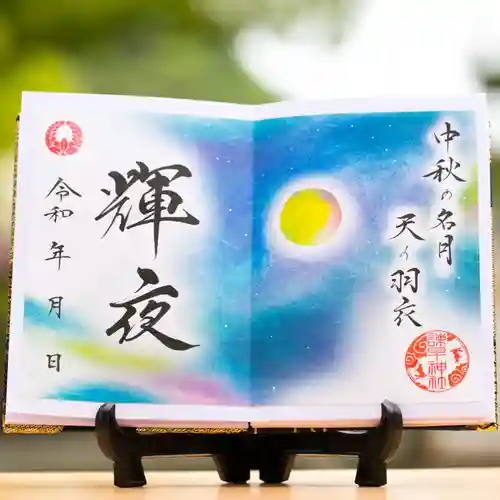 中秋の名月
天の羽衣
諫早神社
輝夜
令和 年 月 日